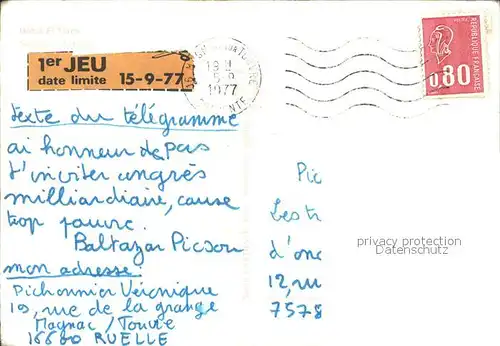 1er JEU
date limite 15-9-77
19 H
5-9
1977
RÉPUBLIQUE FRANÇAISE
0,80
texte du télégramme
ai honneur de pas
t'inviter congrès
milliardiaire, cause
trop pauvre.
Baltazar Picsou
mon adresse:
Pichonnier Véronique
19, rue de la grange
Magnac/Touvre
16660 RUELLE
Pic
Les tr
d'onc
12, ru
7578
privacy protection
Datenschutz